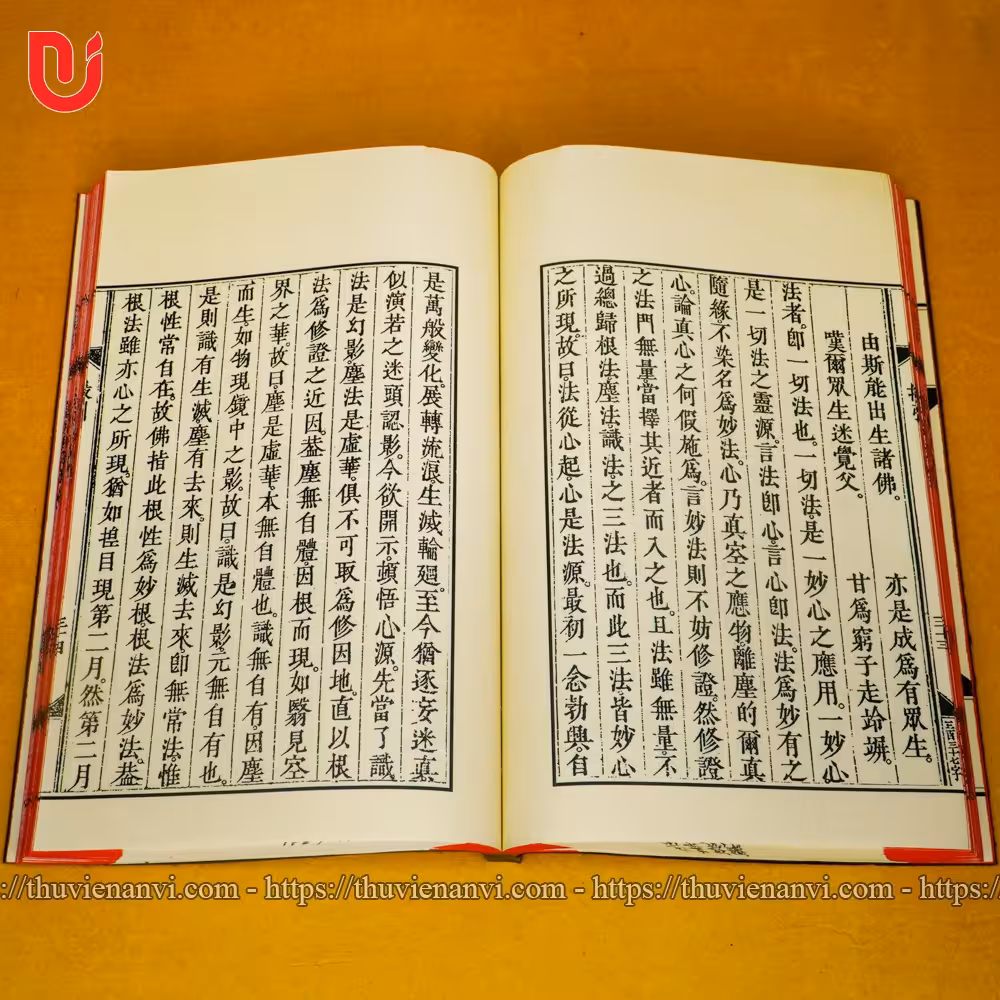 由斯能出生諸佛。 亦是成爲有眾生。
嘆爾眾生迷覺父。 甘爲窮子走竛竮。
法者。卽一切法也。一切法。是一妙心之應用。一妙心
是一切法之靈源。言法卽心。言心卽法。法爲妙有之
隨緣。不染名爲妙法。心乃真空之應物。離塵的爾真
心。論真心之何假施爲。言妙法則不妨修證。然修證
之法門無量。當擇其近者而入之也。且法雖無量。不
過總歸根法塵法識法。之三法也。而此三法。皆妙心
之所現。故曰。法從心起。心是法源。最初一念勃興。自
是萬般變化。展轉流浪。生滅輪廻。至今猶逐妄迷真
似演若之迷頭認影。今欲開示。頓悟心源。先當了識
法是幻影。塵法是虛華。俱不可取爲修因地。直以根
法爲修證之近因。葢塵無自體。因根而現。如翳見空
界之華。故曰。塵是虛華。本無自體也。識無自有因塵
而生。如物現鏡中之影。故曰。識是幻影。元無自有也。
是則識有生滅。塵有去來。則生滅去來。卽無常法。惟
根性常自在。故佛指此根性爲妙根。根法爲妙法。葢
根法雖亦心之所現。猶如捏目現第二月。然第二月
三十三
三十四
https://thuvienanvi.com - https://thuvienanvi.com - https://thuvienanvi.com - https://thuvienanvi.com